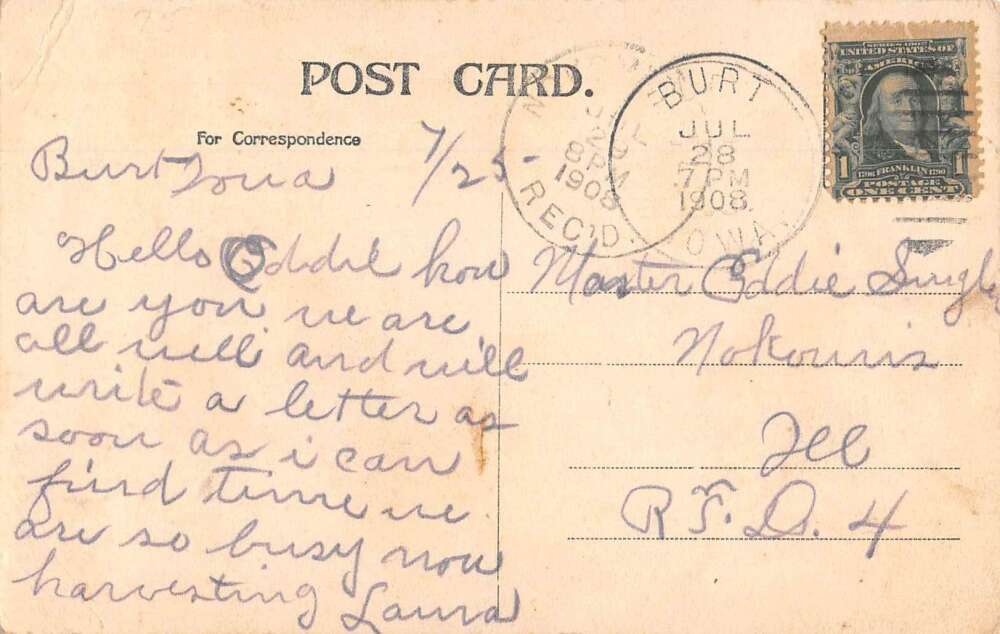 POST CARD.
For Correspondence
Burt Iowa 7/25-
Hello Eddie how
are you we are
all well and will
write a letter as
soon as i can
find time we
are so busy now
harvesting Laura
REC'D.
8 PM
1908
BURT
JUL
28
7 PM
1908
IOWA
SERIES 1902
UNITED STATES OF
AMERICA
1 1
1706 FRANKLIN 1790
POSTAGE
ONE CENT
Master Eddie Singly
Nokomis
Ill
R.F.D. 4